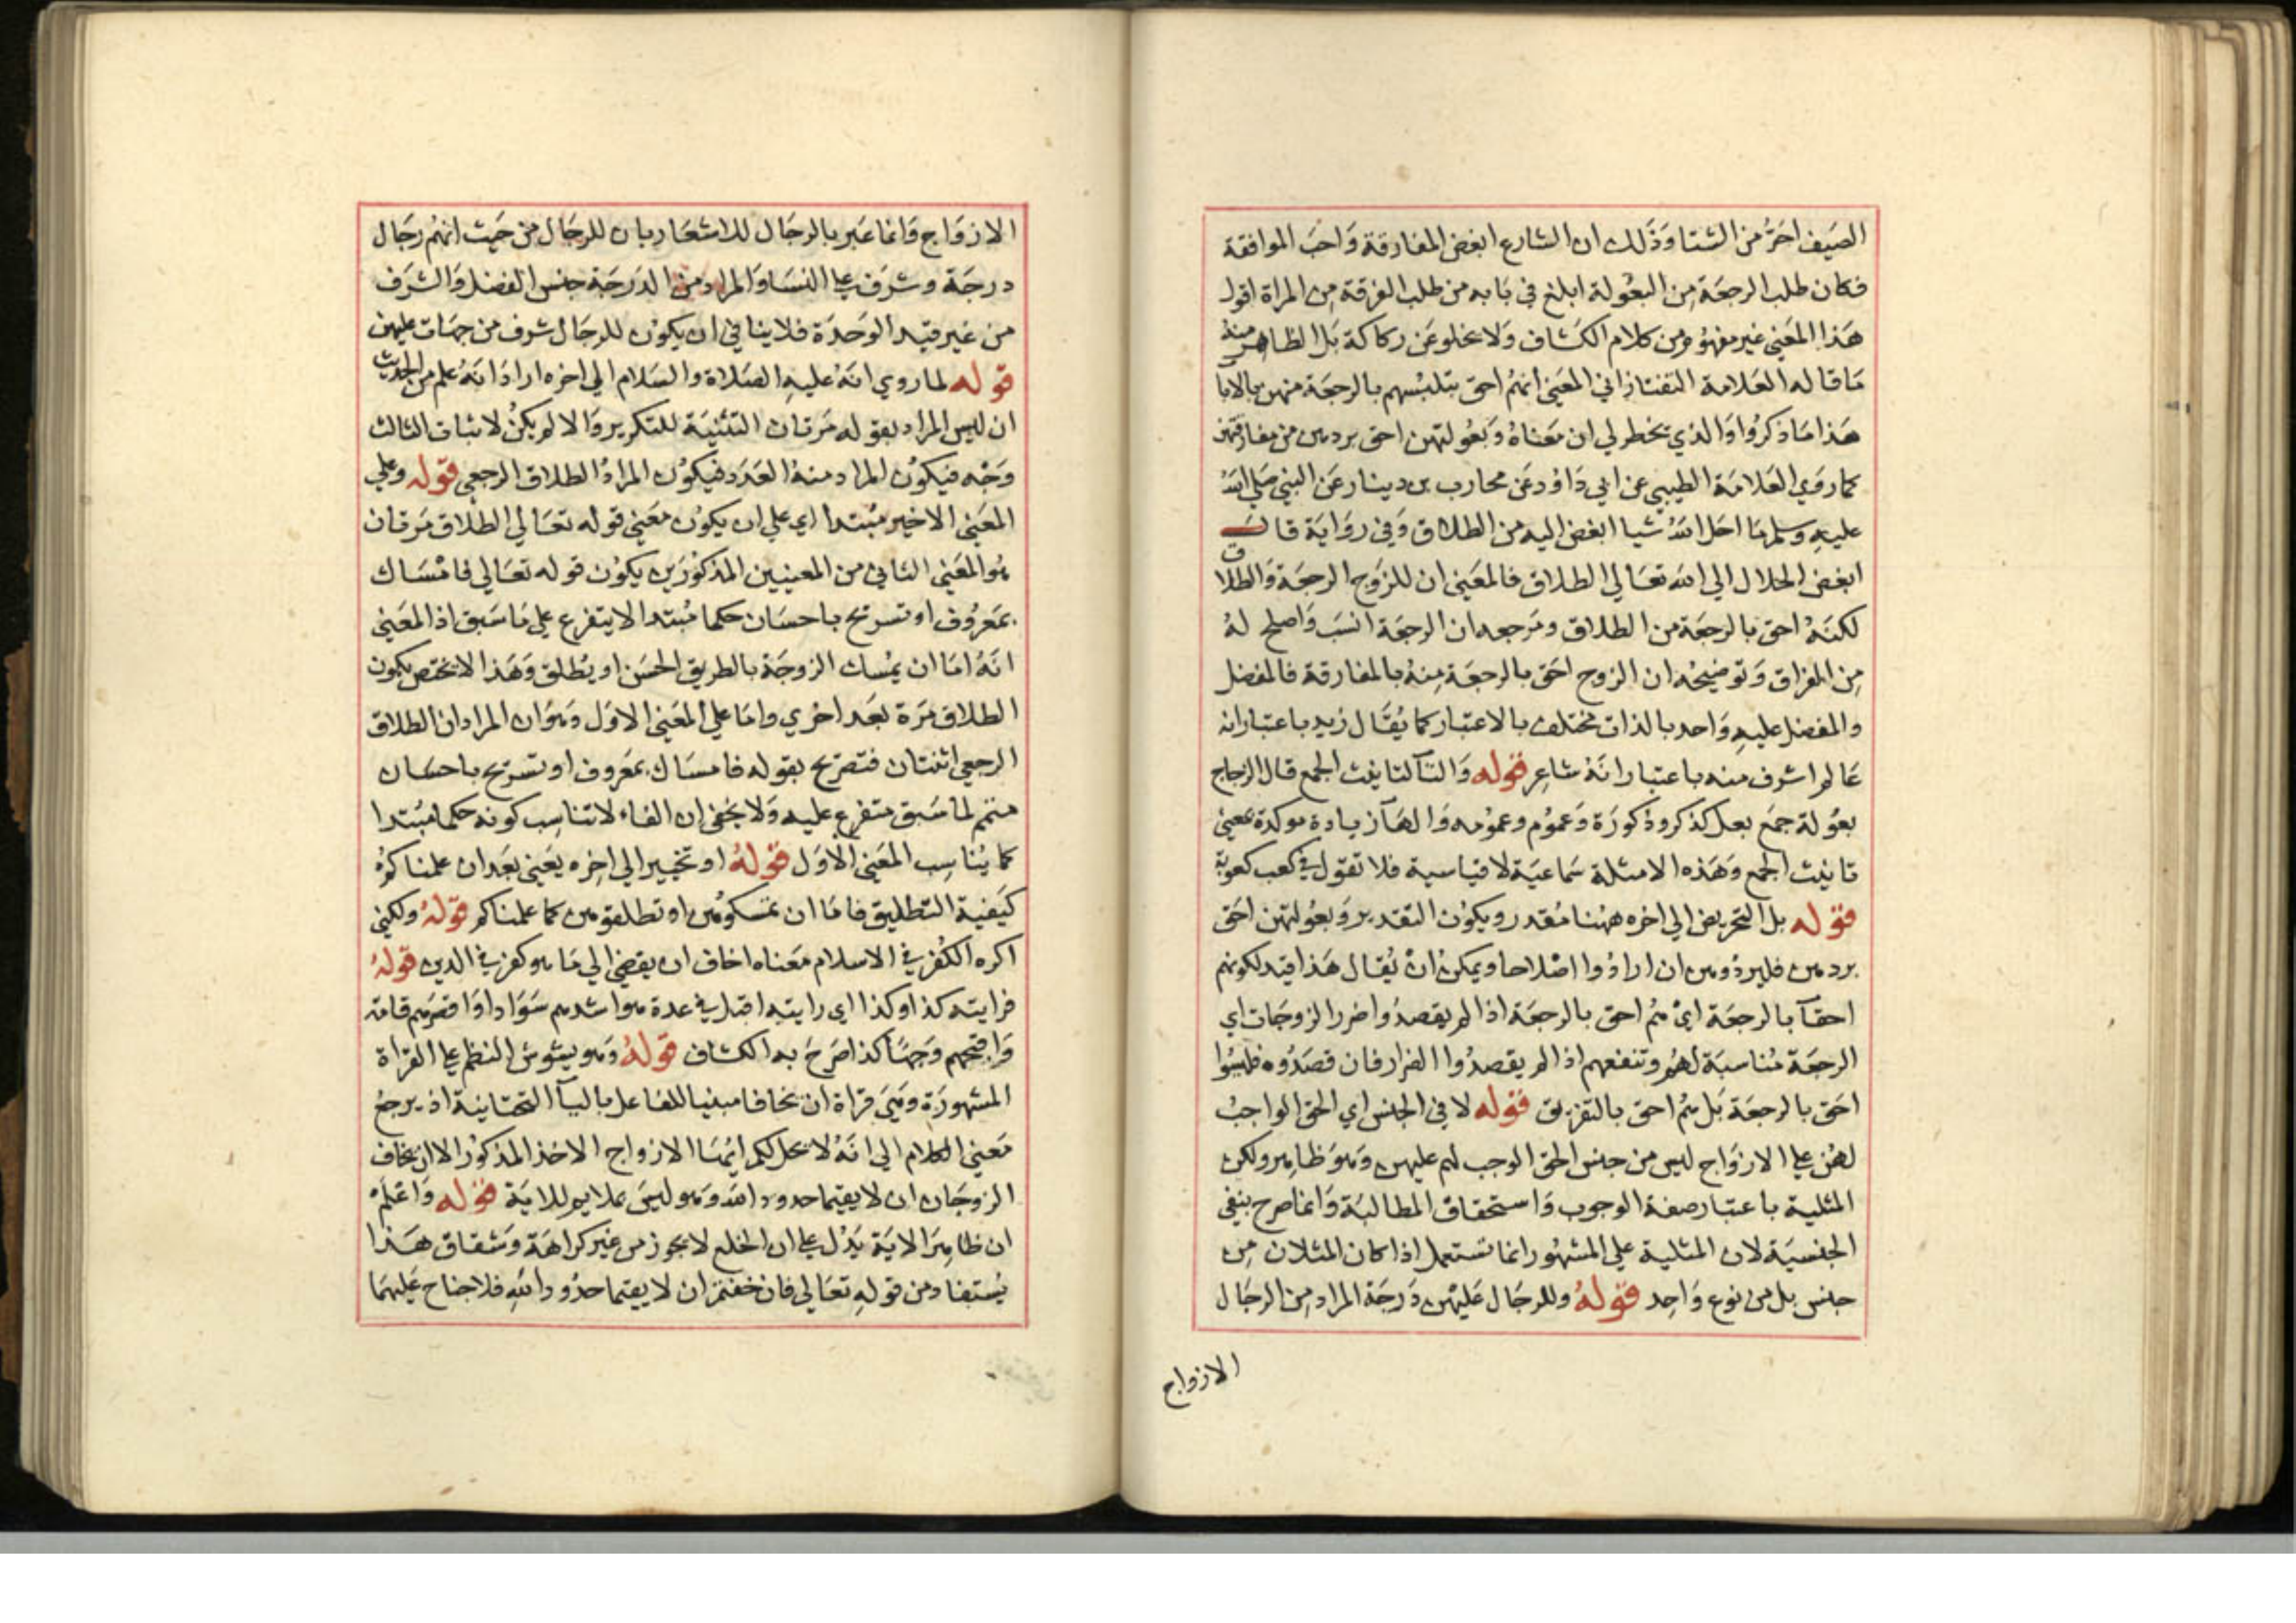 الصيف احرّ من الشتا وذلك ان الشارع ابغض المفارقة واحب الموافقة
فكان طلب الرجعة من البعولة ابلغ في بابه من طلب الفرقة من المراة اقول
هذا المعني غير مفهوم من كلام الكشاف ولا يخلو عن ركاكة بل الظاهر منه
ما قاله العلامة التفتازاني المعني انهم احق بتلبسهم بالرجعة منهن بالابا
هذا ما ذكروا والذي يخطر لي ان معناه وبعولتهن احق بردهن من مفارقتهن
كما روي العلامة الطيبي عن ابي داود عن محارب بن دينار عن النبي صلي الله
عليه وسلم ما احل الله شيا ابغض اليه من الطلاق وفي رواية قال
ابغض الحلال الي الله تعالي الطلاق فالمعني ان للزوج الرجعة والطلاق
لكنه احق بالرجعة من الطلاق ومرجعه ان الرجعة انسب واصلح له
من الفراق وتوضيحه ان الزوج احق بالرجعة منه بالمفارقة فالمفضل
والمفضل عليه واحد بالذات مختلف بالاعتبار كما يقال زيد باعتبار انه
عالم اشرف منه باعتبار انه شاعر قوله والتآ لتانيث الجمع قال الزجاج
بعولة جمع بعل كذكر وذكورة وعموم وعمومه والهآ زيادة موكدة بمعني
تانيث الجمع وهذه الامثلة سماعية لا قياسية فلا تقول في كعب كعوبة
قوله بل التحريض الي اخره ههنا مقدر ويكون التقدير وبعولتهن احق
بردهن فليردوهن ان ارادوا اصلاحا ويمكن ان يقال هذا قيد لكونهم
احقآ بالرجعة اي هم احق بالرجعة اذا لم يقصدوا ضرر الزوجات اي
الرجعة مناسبة لهم وتنفعهم اذ لم يقصدوا الضرار فان قصدوه فليسوا
احق بالرجعة بل هم احق بالتفريق قوله لا في الجنس اي الحق الواجب
لهن علي الازواج ليس من جنس الحق الوجب لهم عليهن وهو ظاهر ولكن
المثلية باعتبار صفة الوجوب واستحقاق المطالبة وانما صرح بنفي
الجنسية لان المثلية علي المشهور انما تستعمل اذا كان المثلان من
جنس بل من نوع واحد قوله وللرجال عليهن درجة المراد من الرجال
الازواج
الازواج وانما عبر بالرجال للاشعار بان للرجال من حيث انهم رجال
درجة وشرف علي النسا والمراد من الدرجة جنس الفضل والشرف
من غير قيد الوحدة فلا ينافي ان يكون للرجال شرف من جهات عليهن
قوله لما روي انه عليه الصلاة والسلام الي اخره اراد انه علم من الحديث
ان ليس المراد بقوله مرتان التثنية للتكرير والا لم يكن لاثبات الثالث
وجه فيكون المراد منه العدد فيكون المراد الطلاق الرجعي قوله وعلي
المعني الاخير مبتدا اي علي ان يكون معني قوله تعالي الطلاق مرتان
هو المعني الثاني من المعنيين المذكورين يكون قوله تعالي فامساك
بمعروف او تسريح باحسان حكما مبتدا لا يتفرع علي ما سبق اذ المعني
انه اما ان يمسك الزوجة بالطريق الحسن او يطلق وهذا لا يختص بكون
الطلاق مرة بعد اخري واما علي المعني الاول وهو ان المراد ان الطلاق
الرجعي اثنتان فتصريح بقوله فامساك بمعروف او تسريح باحسان
متمم لما سبق متفرع عليه ولا يخفي ان الفاء لا تناسب كونه حكما مبتدا
كما يناسب المعني الاول قوله او تخيير الي اخره يعني بعد ان علمناكم
كيفية التطليق فاما ان تمسكوهن او تطلقوهن كما علمناكم قوله ولكني
اكره الكفر في الاسلام معناه اخاف ان يفضي الي ما هو كفر في الدين قوله
فرايته كذا وكذا اي رايته اقبل في عدة هو اشدهم سوادا واقصرهم قامة
واقبحهم وجها كذا صرح به الكشاف قوله وهو يشوش النظم علي القراة
المشهورة وهي قراة ان يخافا مبنيا للفاعل بالياآ التحتانية اذ يرجع
معني الكلام الي انه لا يحل لكم ايها الازواج الاخذ المذكور الا ان يخاف
الزوجان ان لا يقيما حدود الله وهو ليس بملايم للاية قوله واعلم
ان ظاهر الاية يدل علي ان الخلع لا يجوز من غير كراهة وشقاق هذا
يستفاد من قوله تعالي فان خفتم ان لا يقيما حدود الله فلا جناح عليهما